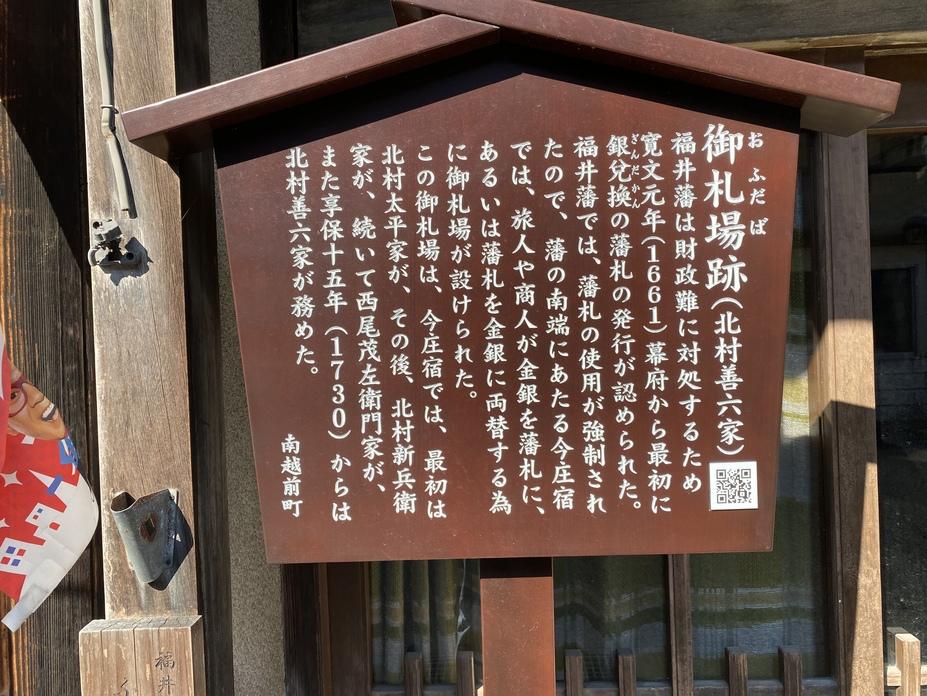 御札場跡(北村善六家)
おふだば
福井藩は財政難に対処するため
寛文元年(1661)幕府から最初に
銀兌換の藩札の発行が認められた。
ぎんだかん
福井藩では、藩札の使用が強制され
たので、藩の南端にあたる今庄宿
では、旅人や商人が金銀を藩札に、
あるいは藩札を金銀に両替する為
に御札場が設けられた。
この御札場は、今庄宿では、最初は
北村太平家が、その後、北村新兵衛
家が、続いて西尾茂左衛門家が、
また享保十五年(1730)からは
北村善六家が務めた。
南越前町
福井